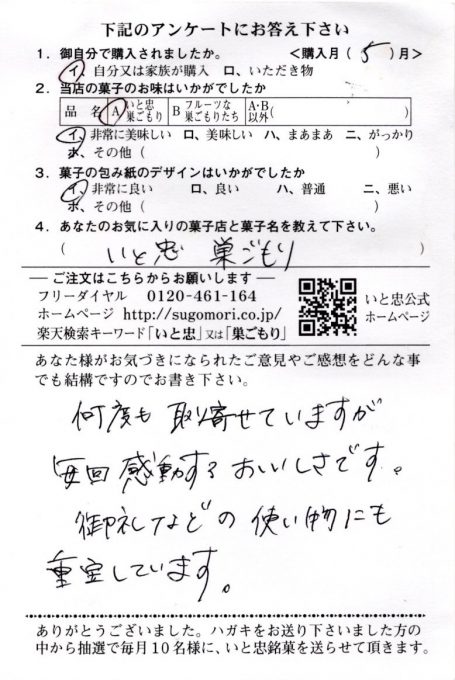 下記のアンケートにお答え下さい
1. 御自分で購入されましたか。　＜購入月（ 5 ）月＞
イ、自分又は家族が購入　ロ、いただき物
2. 当店の菓子のお味はいかがでしたか
品　名　A いと忠巣ごもり　B フルーツな巣ごもりたち　A・B以外（　　　）
イ、非常に美味しい　ロ、美味しい　ハ、まあまあ　ニ、がっかり
ホ、その他（　　　）
3. 菓子の包み紙のデザインはいかがでしたか
イ、非常に良い　ロ、良い　ハ、普通　ニ、悪い
ホ、その他（　　　）
4. あなたのお気に入りの菓子店と菓子名を教えて下さい。
（　いと忠　巣ごもり　）
― ご注文はこちらからお願いします ―
フリーダイヤル　0120-461-164
ホームページ　http://sugomori.co.jp/
楽天検索キーワード「いと忠」又は「巣ごもり」
いと忠公式
ホームページ
あなた様がお気づきになられたご意見やご感想をどんな事
でも結構ですのでお書き下さい。
何度も取り寄せていますが
毎回感動するおいしさです。
御礼などの使い物にも
重宝しています。
ありがとうございました。ハガキをお送り下さいました方の
中から抽選で毎月10名様に、いと忠銘菓を送らせて頂きます。